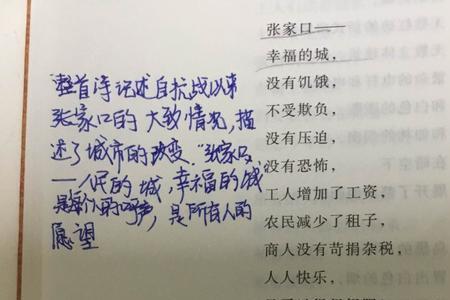 整首诗记述自抗战以来
张家口的大致情况,描
述了城市的改变.“张家口
——人民的城,幸福的城
是每个人的呼声,是所有人的
愿望
张家口——
幸福的城,
没有饥饿,
不受欺负,
没有压迫,
没有恐怖,
工人增加了工资,
农民减少了租子,
商人没有苛捐杂税,
人人快乐,